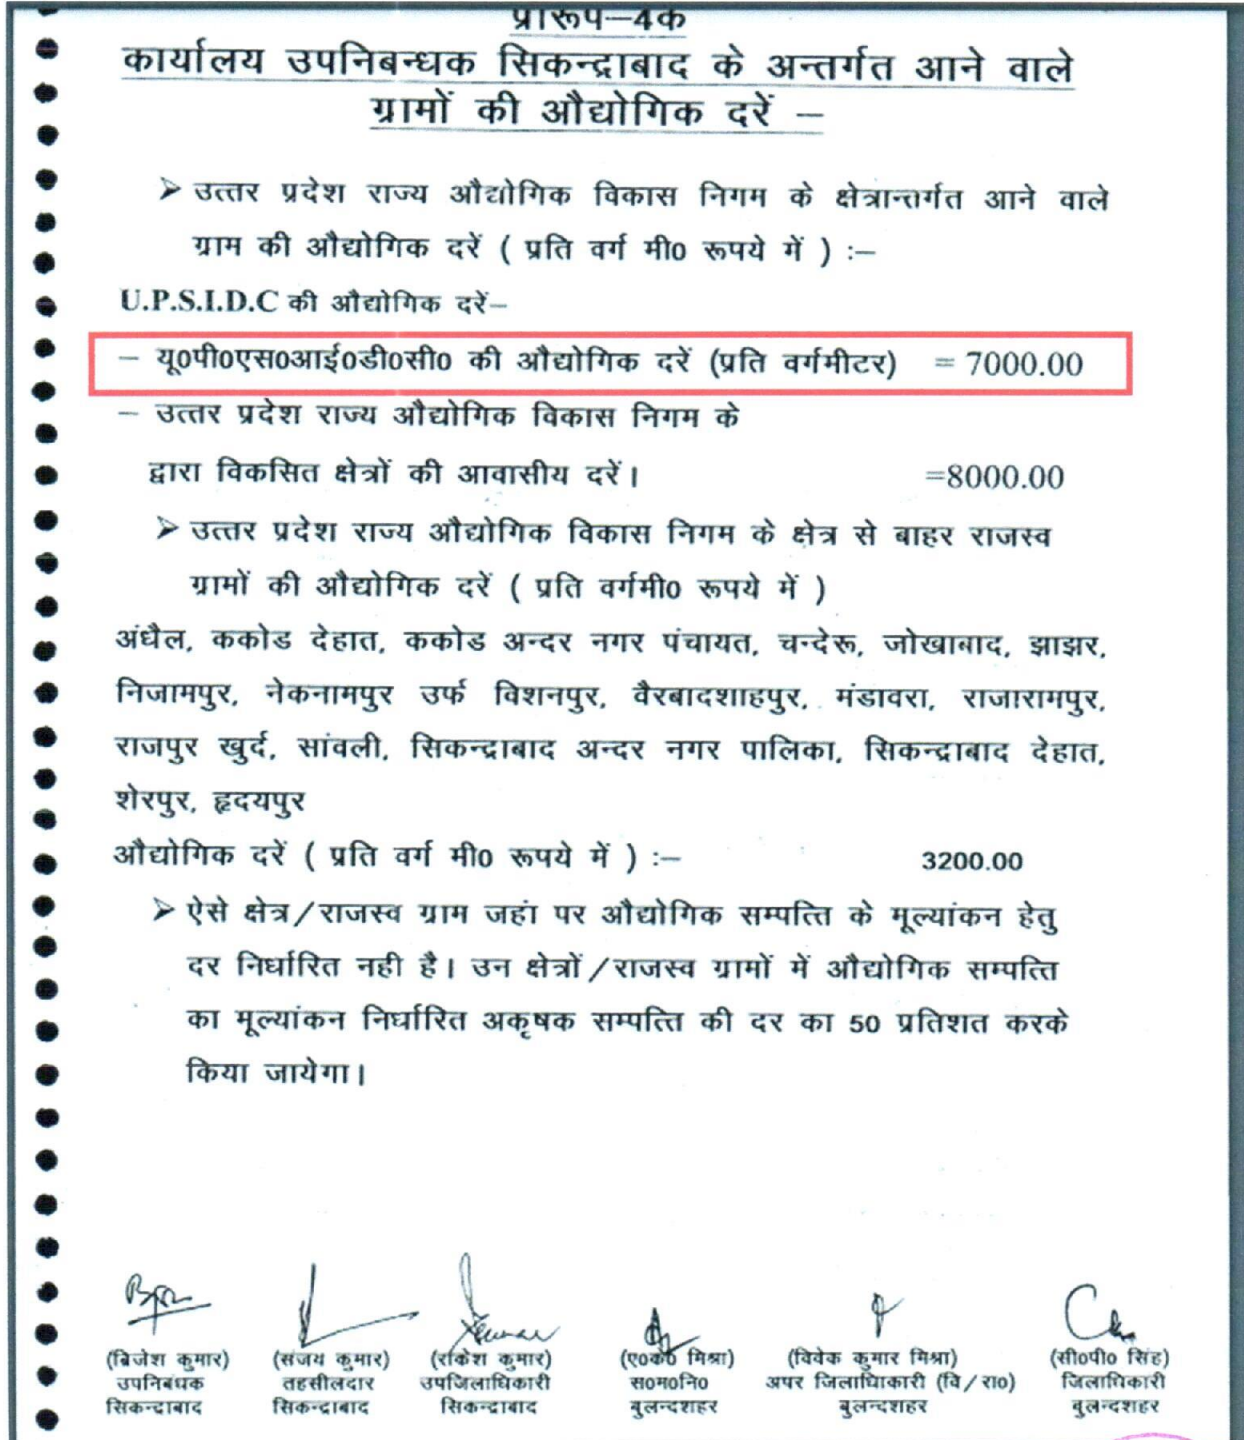 प्रारूप–4क
कार्यालय उपनिबन्धक सिकन्द्राबाद के अन्तर्गत आने वाले
ग्रामों की औद्योगिक दरें –
➢ उत्तर प्रदेश राज्य औद्योगिक विकास निगम के क्षेत्रान्तर्गत आने वाले
ग्राम की औद्योगिक दरें ( प्रति वर्ग मी0 रूपये में ) :–
U.P.S.I.D.C की औद्योगिक दरें–
– यू0पी0एस0आई0डी0सी0 की औद्योगिक दरें (प्रति वर्गमीटर) = 7000.00
– उत्तर प्रदेश राज्य औद्योगिक विकास निगम के
द्वारा विकसित क्षेत्रों की आवासीय दरें। =8000.00
➢ उत्तर प्रदेश राज्य औद्योगिक विकास निगम के क्षेत्र से बाहर राजस्व
ग्रामों की औद्योगिक दरें ( प्रति वर्गमी0 रूपये में )
अंधैल, ककोड देहात, ककोड अन्दर नगर पंचायत, चन्देरू, जोखाबाद, झाझर,
निजामपुर, नेकनामपुर उर्फ विशनपुर, वैरबादशाहपुर, मंडावरा, राजारामपुर,
राजपुर खुर्द, सांवली, सिकन्द्राबाद अन्दर नगर पालिका, सिकन्द्राबाद देहात,
शेरपुर, हृदयपुर
औद्योगिक दरें ( प्रति वर्ग मी0 रूपये में ) :– 3200.00
➢ ऐसे क्षेत्र/राजस्व ग्राम जहां पर औद्योगिक सम्पत्ति के मूल्यांकन हेतु
दर निर्धारित नही है। उन क्षेत्रों/राजस्व ग्रामों में औद्योगिक सम्पत्ति
का मूल्यांकन निर्धारित अकृषक सम्पत्ति की दर का 50 प्रतिशत करके
किया जायेगा।
(ब्रिजेश कुमार) (संजय कुमार) (राकेश कुमार) (ए0के0 मिश्रा) (विवेक कुमार मिश्रा) (सी0पी0 सिंह)
उपनिबंधक तहसीलदार उपजिलाधिकारी स0म0नि0 अपर जिलाधिाकारी (वि/रा0) जिलाधिकारी
सिकन्द्राबाद सिकन्द्राबाद सिकन्द्राबाद बुलन्दशहर बुलन्दशहर बुलन्दशहर